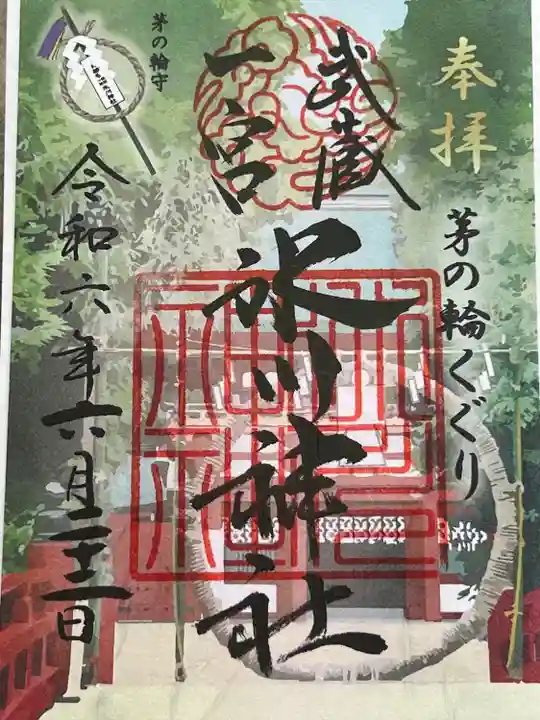 奉拝
茅の輪くぐり
武蔵
一宮
氷川神社
令和六年六月二十二日
茅の輪守